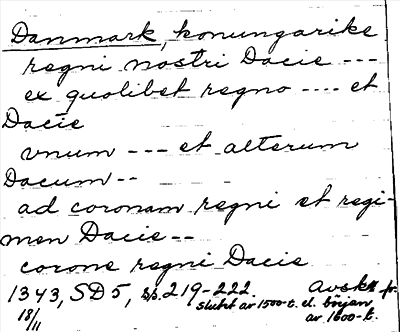 Danmark, konungarike
regni nostri Dacie ---
ex quolibet regno ---- et
Dacie
vnum --- et alterum
Dacum--
ad coronam regni et regi-
men Dacie--
corone regni Dacie
1343, SD5, s. 219-222. Avskr. fr.
slutet av 1500-t. el. början
18/11 av 1600-t.